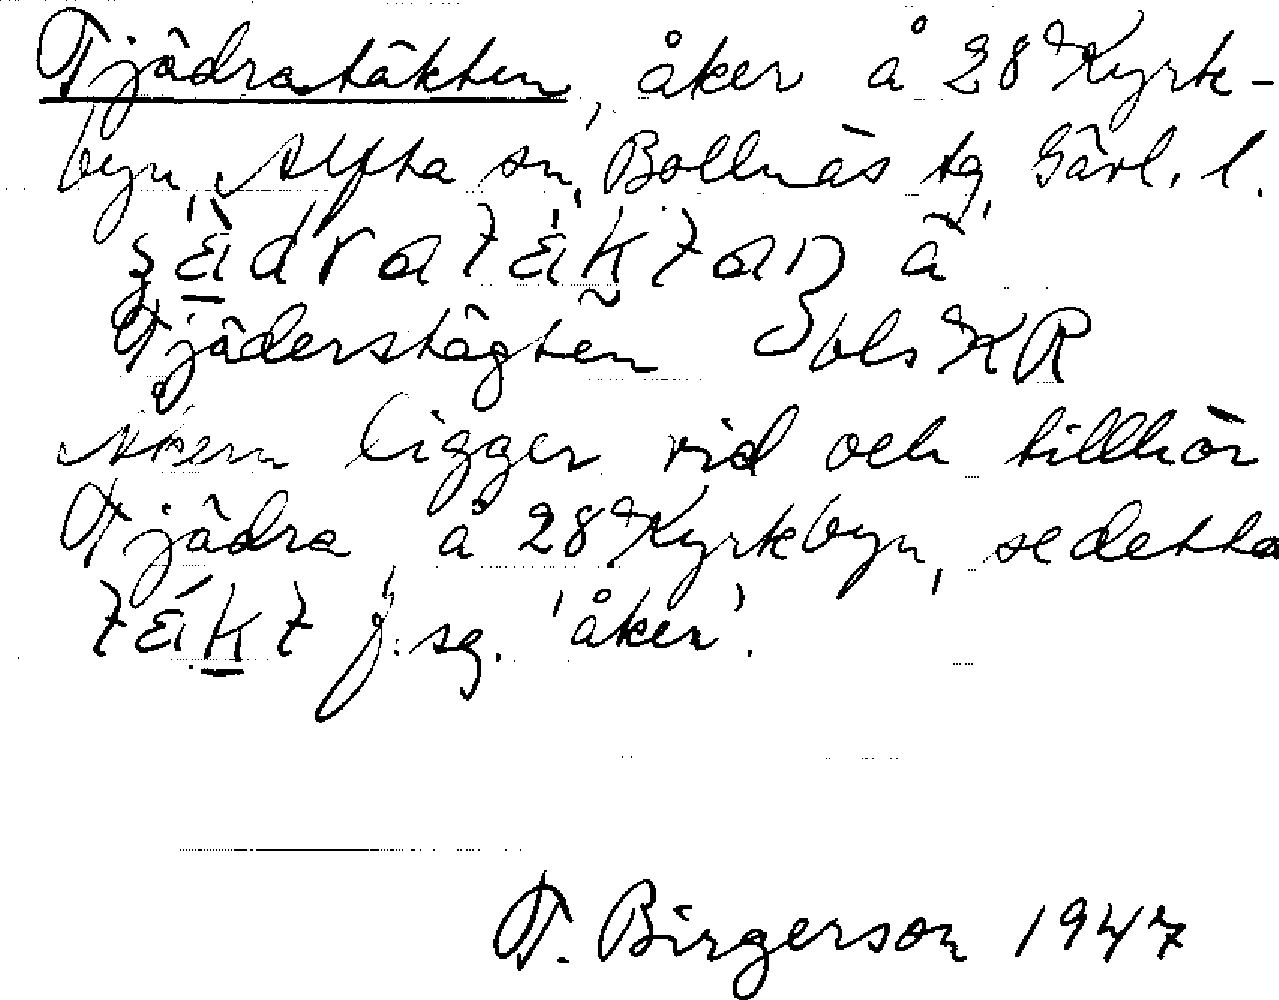 Tjädratäkten, åker å 28 Kyrk-
byn, Alfta sn, Bollnäs tg, Gävl. l.
Tjäderstägten Obls KR
Åkern ligger vid och tillhör
Tjädra å 28 Kyrkbyn, se detta
f. sg. 'åker'.
T. Birgerson 1947